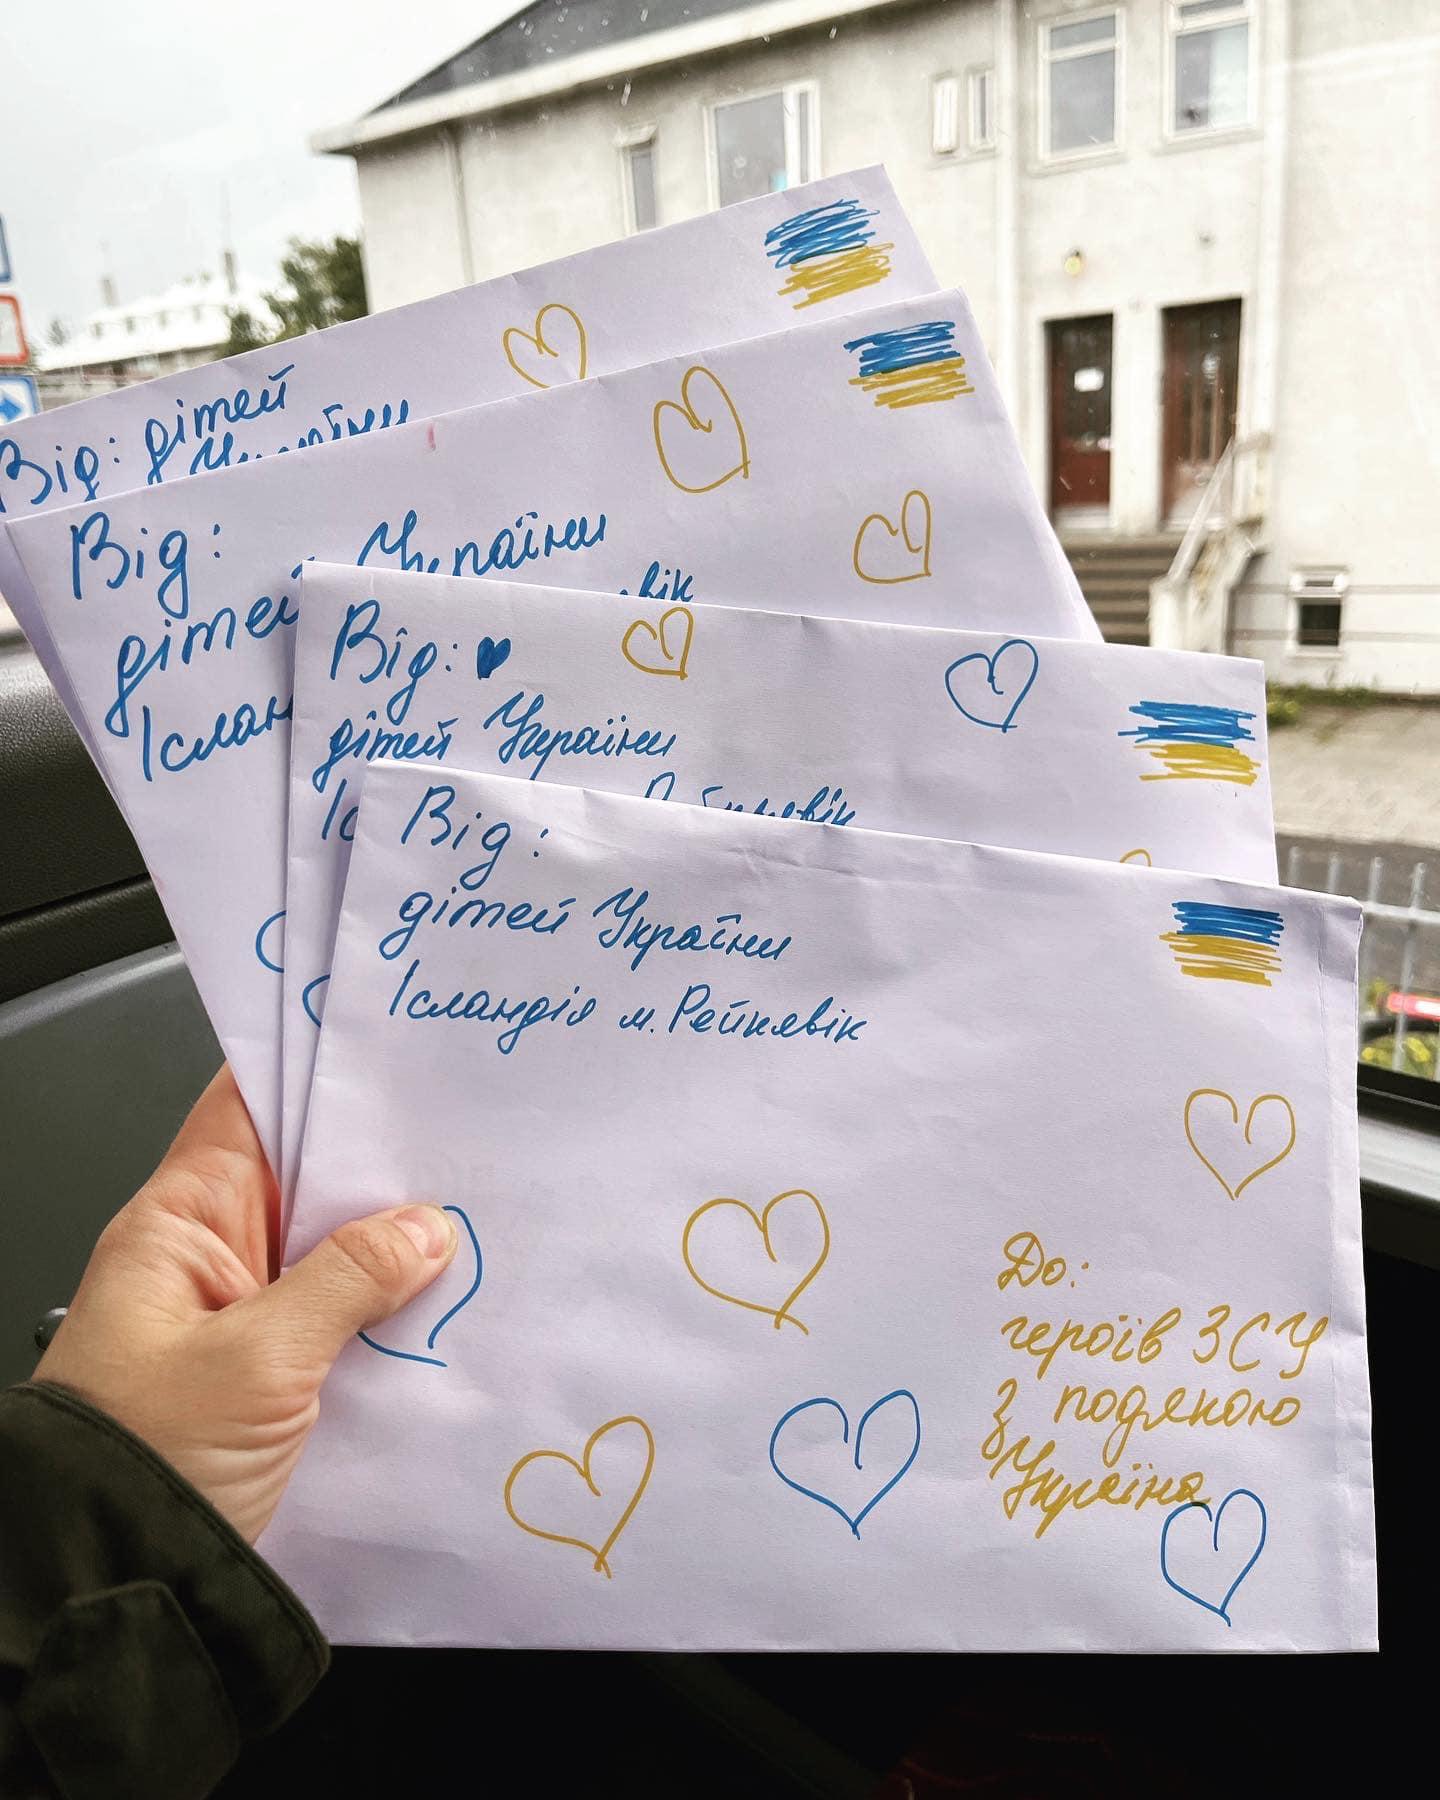 Від: дітей
України
Від:
дітей України
Ісландія
Від:
дітей України
Рейкявік
Від:
дітей України
Ісландія м. Рейкявік
До:
героїв ЗСУ
З подякою
Україна